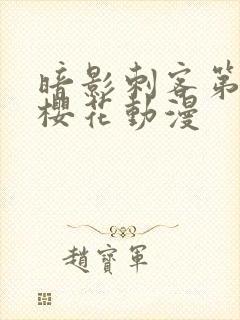 暗影刺客第
櫻花動漫
趙寶軍